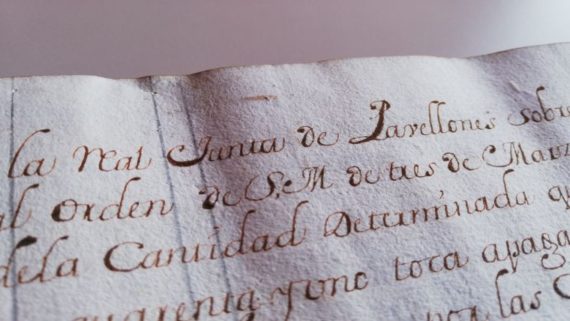 la real Junta de Pavellones sobre
al orden de S.M. de tres de Marz
dela Cantidad Determinada qu
quarenta y una toca apaga
por las